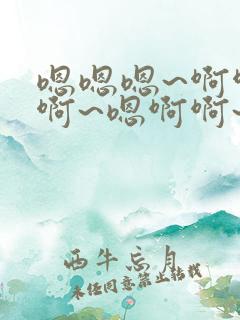 嗯嗯嗯~啊
啊~嗯啊啊~
西牛忘月
未经同意禁止转载